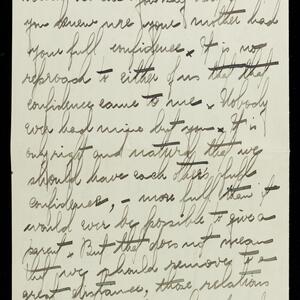 you knew me your mother had
your full confidence. It is no
reproach to either of us that that
confidence came to me. Nobody
ever had mine but you. It is
only right and natural that we
should have each other's full
confidence, - more full than it
would ever be possible to give a
parent. But that does not mean
that we should remove to a
great distance, those relations